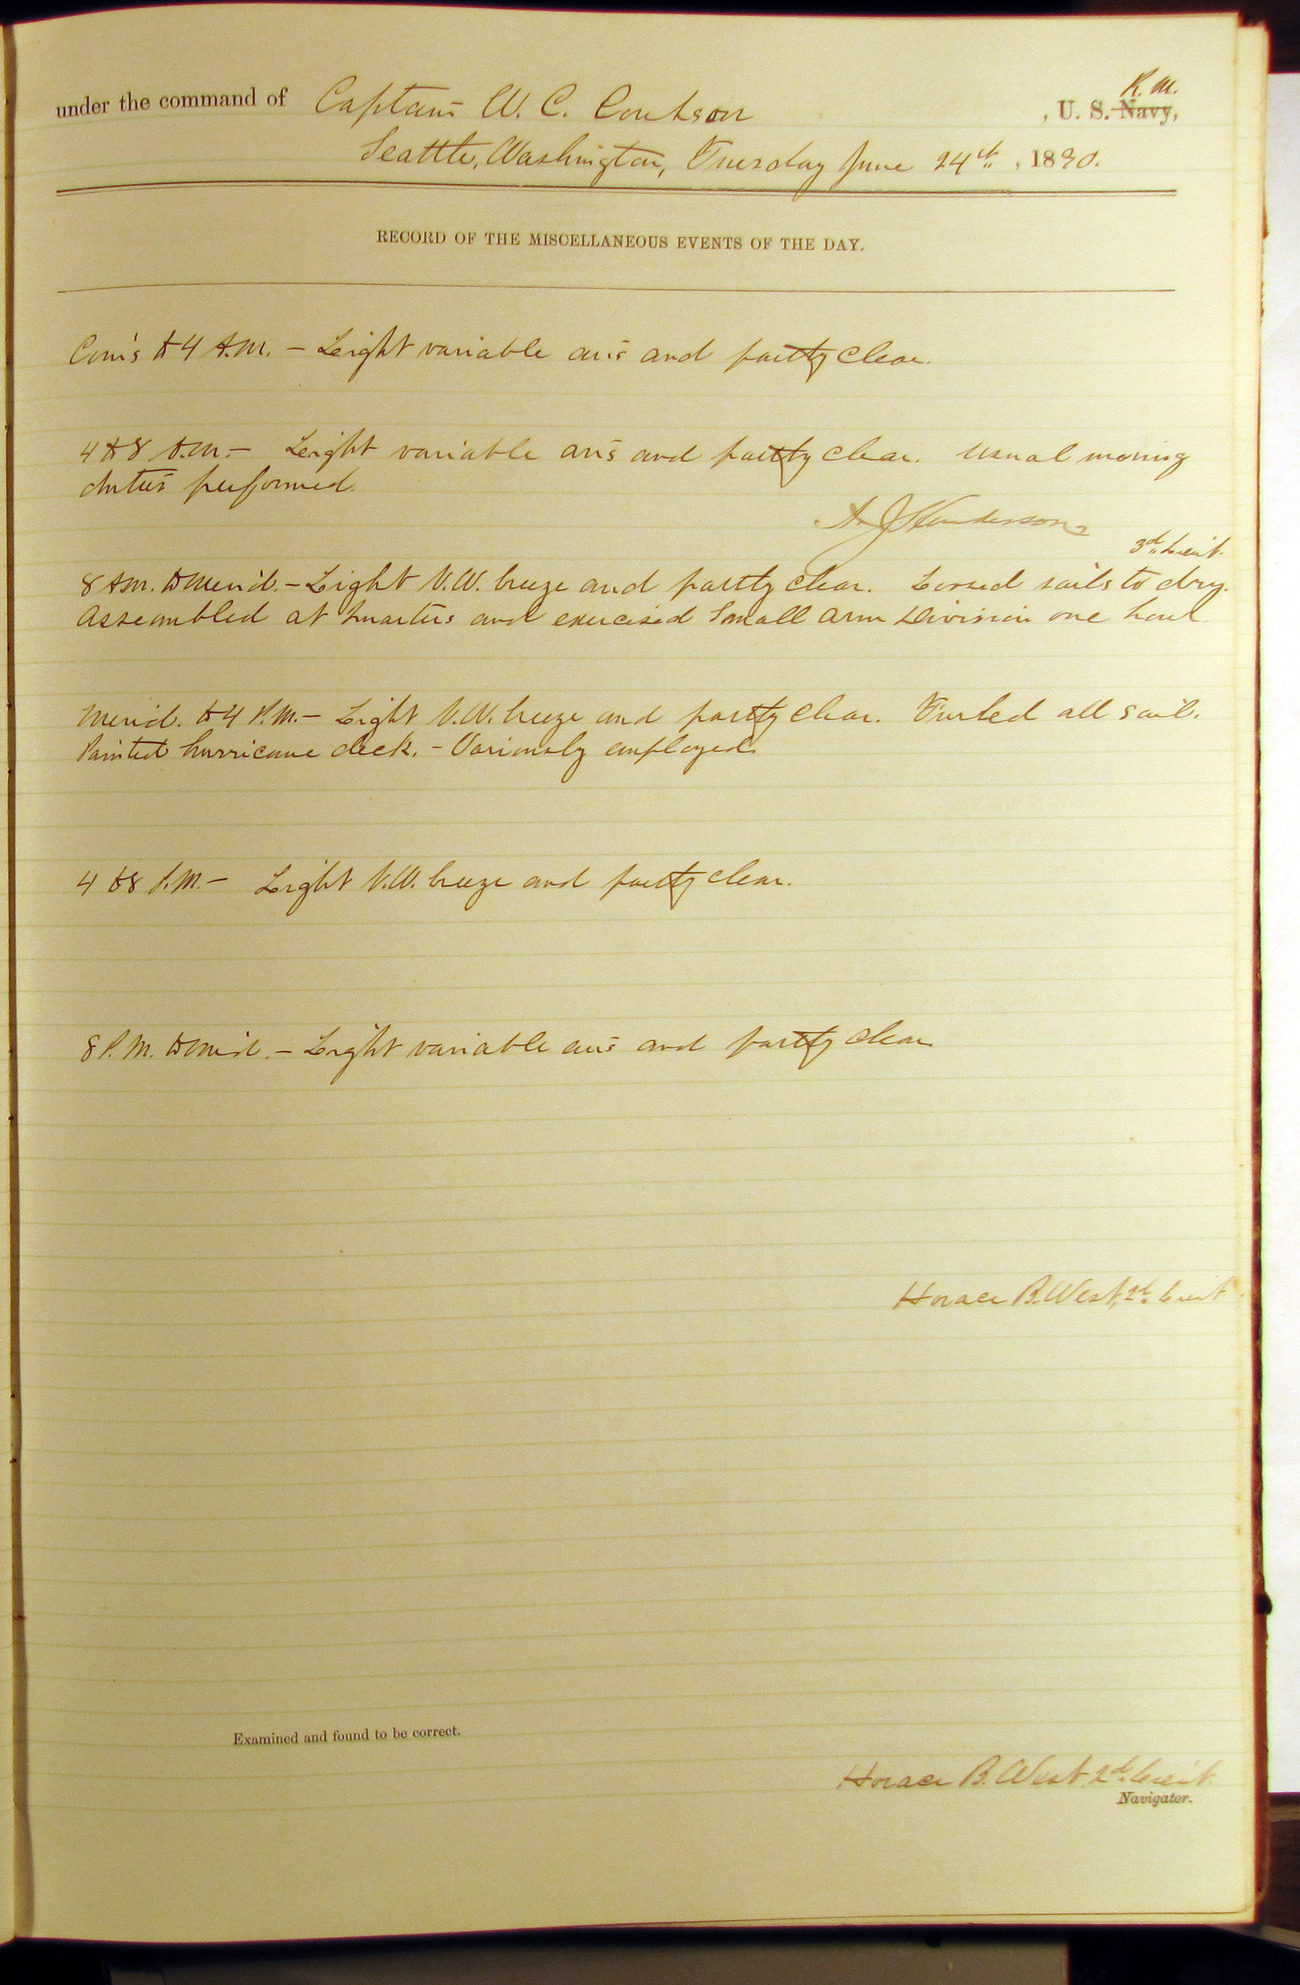 under the command of Captain W. C. Coulson , U. S. Navy, R. M.
Seattle, Washington, Tuesday June 24th , 1890.
RECORD OF THE MISCELLANEOUS EVENTS OF THE DAY.
Com's to 4 A.M. — Light variable airs and partly clear.
4 to 8 A.M. — Light variable airs and partly clear. Usual morning
duties performed.
A. J. Henderson
3d Lieut.
8 A.M. to Merid. — Light N.W. breeze and partly clear. Loosed sails to dry.
Assembled at Quarters and exercised Small Arm Division one hour
Merid. to 4 P.M. — Light N.W. breeze and partly clear. Furled all sail.
Painted hurricane deck. — Variously employed.
4 to 8 P.M. — Light N.W. breeze and partly clear.
8 P.M. to Mid. — Light variable airs and partly clear
Horace B. West, 2d Lieut
Examined and found to be correct.
Horace B. West, 2d Lieut.
Navigator.